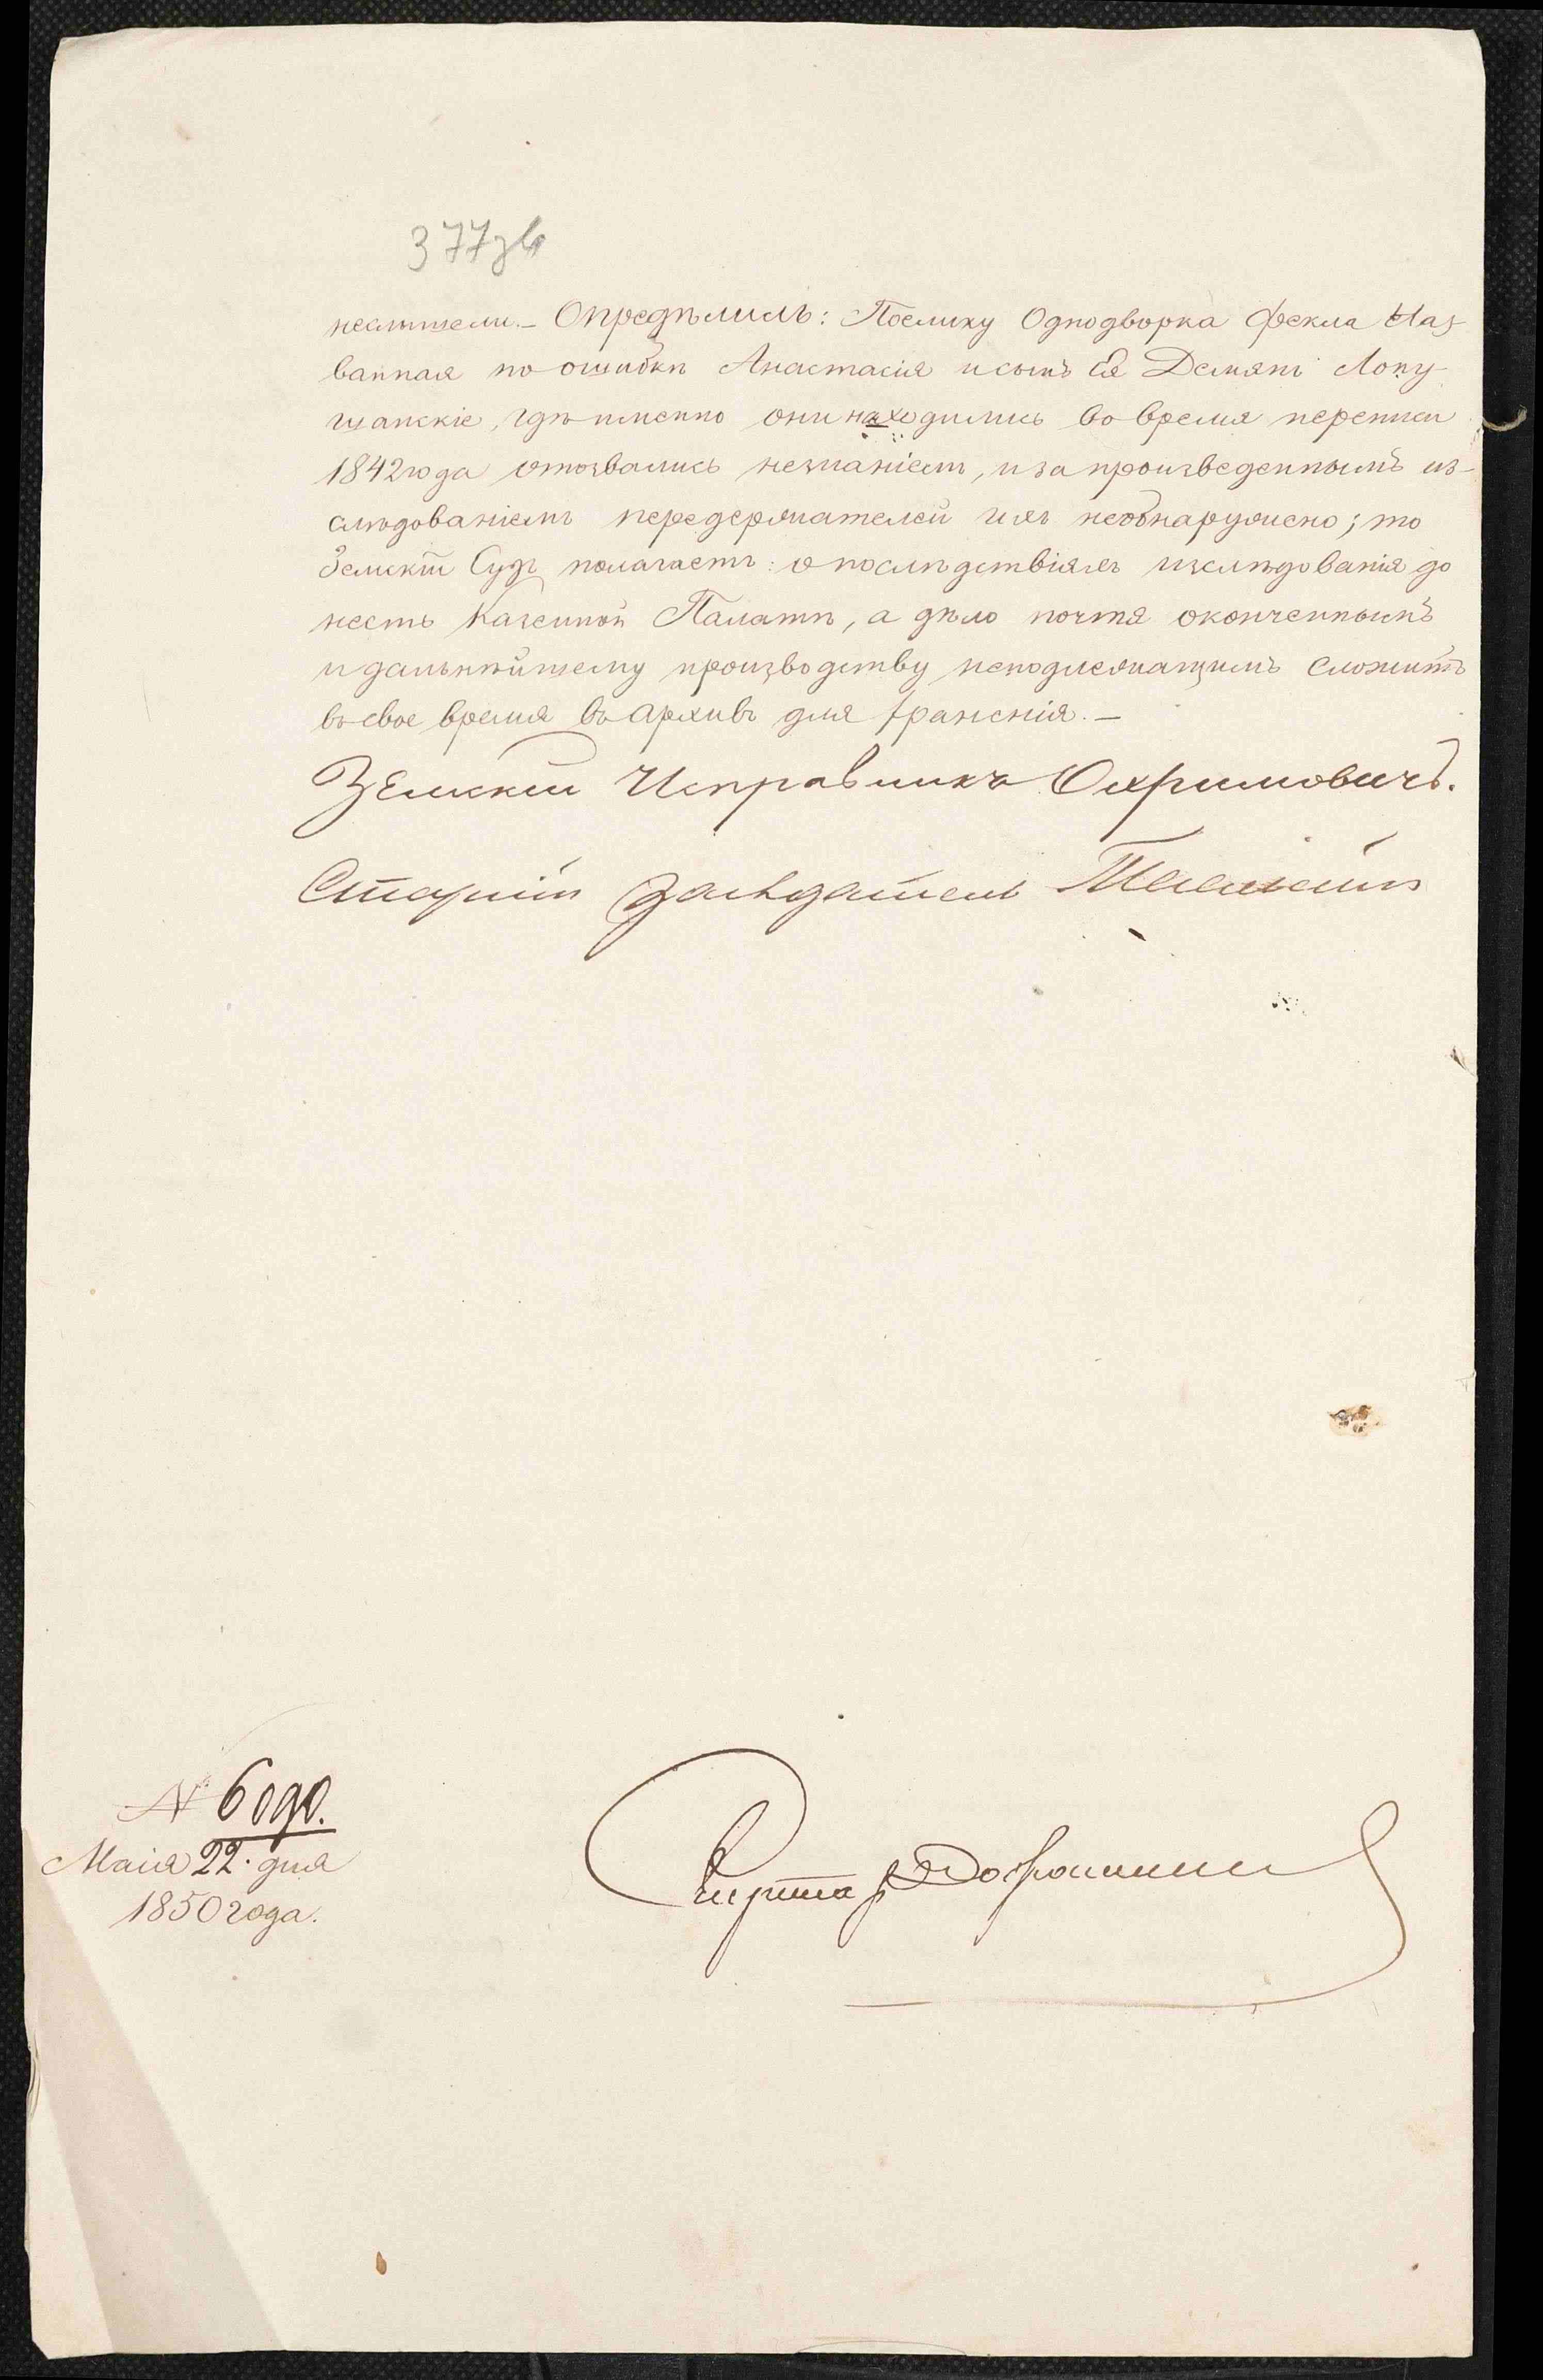 377зв
неслышели. – Опредѣлилъ: Поелику Однодворка Фекла Наз-
ванная по ошибкѣ Анастасія и сынъ Ея Демяні Лопу-
шанскіе, гдѣ именно они находились во время переписи
1842 года отозвались незнаніемъ, и за произведеннымъ из-
слѣдованіемъ передержателей ихъ необнаружено; то
Земскій Судъ полагаетъ: о послѣдствіяхъ изслѣдованія до
несть Казенной Палатѣ, а дѣло почтя оконченнымъ
и дальнѣйшему производству неподлежащимъ сложить
въ свое время въ архивъ для храненія. –
Земскій Исправникъ Охримовичъ.
Старшій Засѣдатель
№ 6090.
Маія 22. дня
1850 года.